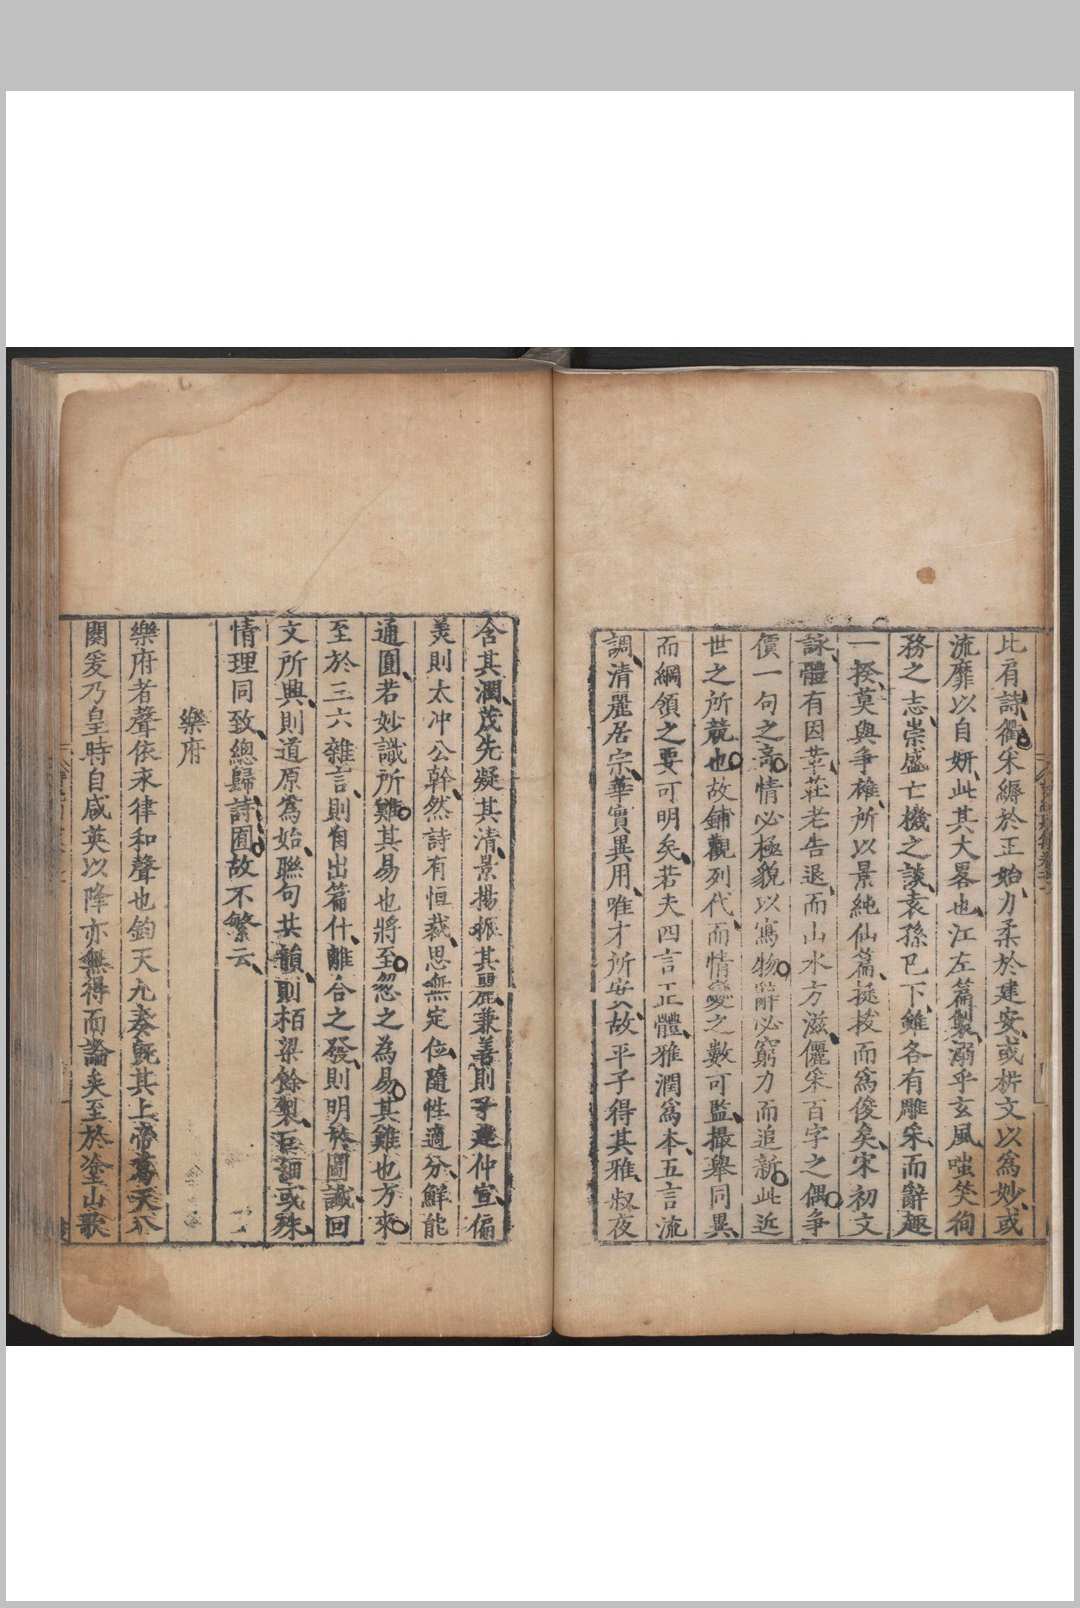 比肩詩衢采縟於正始力柔於建安或析文以爲妙或
流靡以自妍此其大畧也江左篇製溺乎玄風嗤笑徇
務之志崇盛亡機之談袁孫已下雖各有雕采而辭趣
一揆莫與爭雄所以景純仙篇挺拔而爲俊矣宋初文
詠體有因革莊老告退而山水方滋儷采百字之偶爭
價一句之竒情必極貌以寫物辭必窮力而追新此近
世之所競也故鋪觀列代而情變之數可監撮舉同異
而綱領之要可明矣若夫四言正體雅潤爲本五言流
調清麗居宗華實異用唯才所安故平子得其雅叔夜
含其潤茂先凝其清景揚振其麗兼善則子建仲宣偏
美則太冲公幹然詩有恒裁思無定位隨性適分鮮能
通圓若妙識所難其易也將至忽之為易其難也方來
至於三六雜言則自出篇什離合之發則明於圖讖回
文所興則道原爲始聯句共韻則栢梁餘製巨細或殊
情理同致總歸詩囿故不繁云
樂府
樂府者聲依永律和聲也鈞天九奏旣其上帝葛天八
闋爰乃皇時自咸英以降亦無得而論矣至於塗山歌